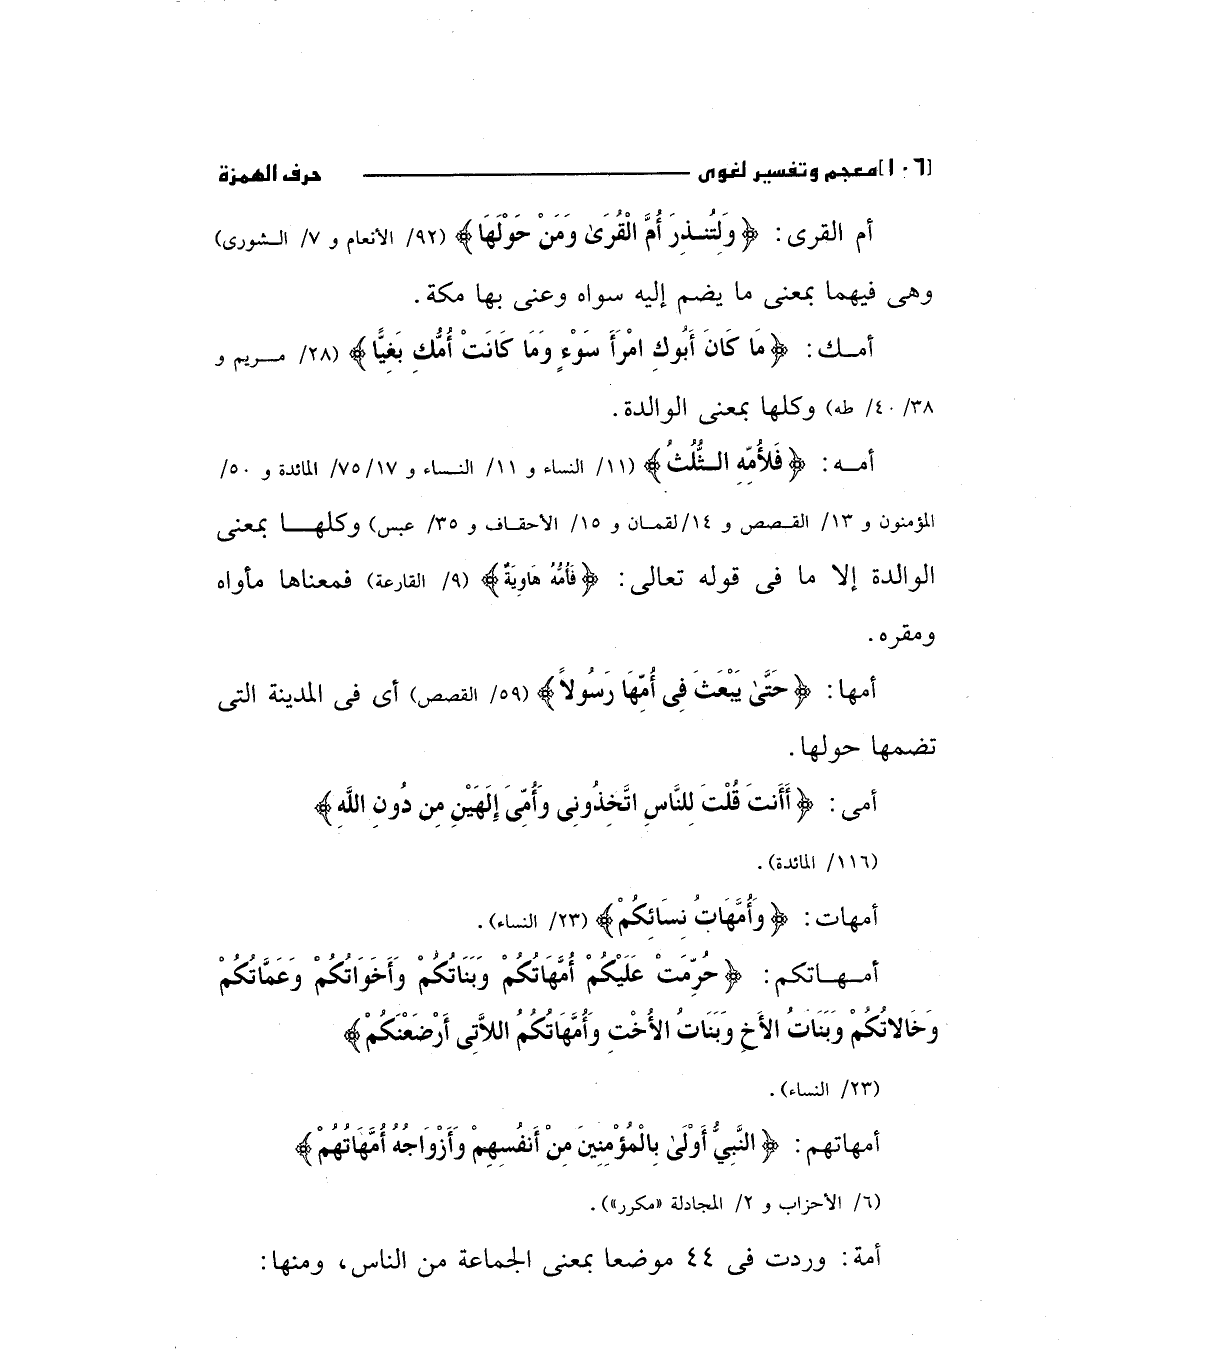 [١٠٦] معجم وتفسير لغوى حرف الهمزة
أم القرى: ﴿وَلِتُنـذِرَ أُمَّ الْقُرَىٰ وَمَنْ حَوْلَهَا﴾ (٩٢/ الأنعام و ٧/ الـشورى)
وهى فيهما بمعنى ما يضم إليه سواه وعنى بها مكة.
أمـك: ﴿مَا كَانَ أَبُوكِ امْرَأَ سَوْءٍ وَمَا كَانَتْ أُمُّكِ بَغِيًّا﴾ (٢٨/ مـريم و
٣٨/ ٤٠/ طه) وكلها بمعنى الوالدة.
أمـه: ﴿فَلأُمِّهِ الـثُّلُثُ﴾ (١١/ النساء و ١١/ النـساء و ٧٥/١٧/ المائدة و ٥٠/
المؤمنون و ١٣/ القـصص و ١٤/لقمـان و ١٥/ الأحقـاف و ٣٥/ عبس) وكلهـا بمعنى
الوالدة إلا ما فى قوله تعالى: ﴿فَأُمُّهُ هَاوِيَةٌ﴾ (٩/ القارعة) فمعناها مأواه
ومقره.
أمها: ﴿حَتَّىٰ يَبْعَثَ فِى أُمِّهَا رَسُولاً﴾ (٥٩/ القصص) أى فى المدينة التى
تضمها حولها.
أمى: ﴿أَأَنتَ قُلْتَ لِلنَّاسِ اتَّخِذُونِى وَأُمِّىَ إِلَهَيْنِ مِن دُونِ اللَّهِ﴾
(١١٦/ المائدة).
أمهات: ﴿وَأُمَّهَاتُ نِسَائِكُمْ﴾ (٢٣/ النساء).
أمـهـاتكم: ﴿حُرِّمَتْ عَلَيْكُمْ أُمَّهَاتُكُمْ وَبَنَاتُكُمْ وَأَخَوَاتُكُمْ وَعَمَّاتُكُمْ
وَخَالاتُكُمْ وَبَنَاتُ الأَخِ وَبَنَاتُ الأُخْتِ وَأُمَّهَاتُكُمُ اللاَّتِى أَرْضَعْنَكُمْ﴾
(٢٣/ النساء).
أمهاتهم: ﴿النَّبِيُّ أَوْلَىٰ بِالْمُؤْمِنِينَ مِنْ أَنفُسِهِمْ وَأَزْوَاجُهُ أُمَّهَاتُهُمْ﴾
(٦/ الأحزاب و ٢/ المجادلة «مكرر»).
أمة: وردت فى ٤٤ موضعا بمعنى الجماعة من الناس، ومنها: